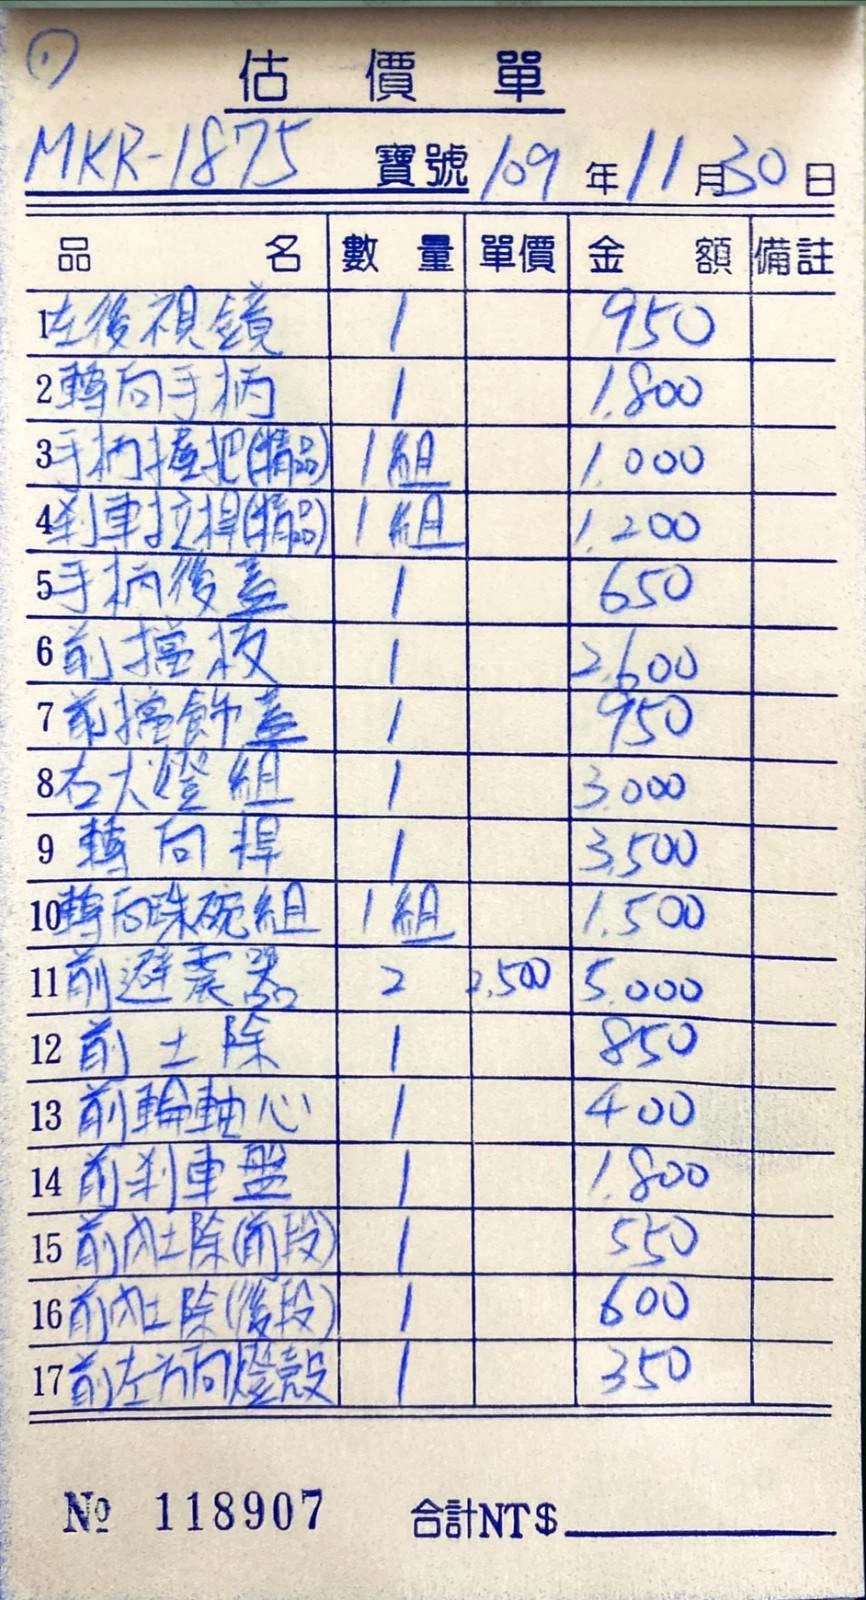 ①
估價單
MKR-1875 寶號 109年11月30日
品名 數量 單價 金額 備註
1 左後視鏡 1 950
2 轉向手柄 1 1,800
3 手柄握把(精品) 1組 1,000
4 剎車拉桿(精品) 1組 1,200
5 手柄後蓋 1 650
6 前擋板 1 2,600
7 前擋飾蓋 1 950
8 右大燈組 1 3,000
9 轉向桿 1 3,500
10 轉向珠碗組 1組 1,500
11 前避震器 2 2,500 5,000
12 前土除 1 850
13 前輪軸心 1 400
14 前剎車盤 1 1,800
15 前內土除(前段) 1 550
16 前內土除(後段) 1 600
17 前左方向燈殼 1 350
№ 118907 合計NT$